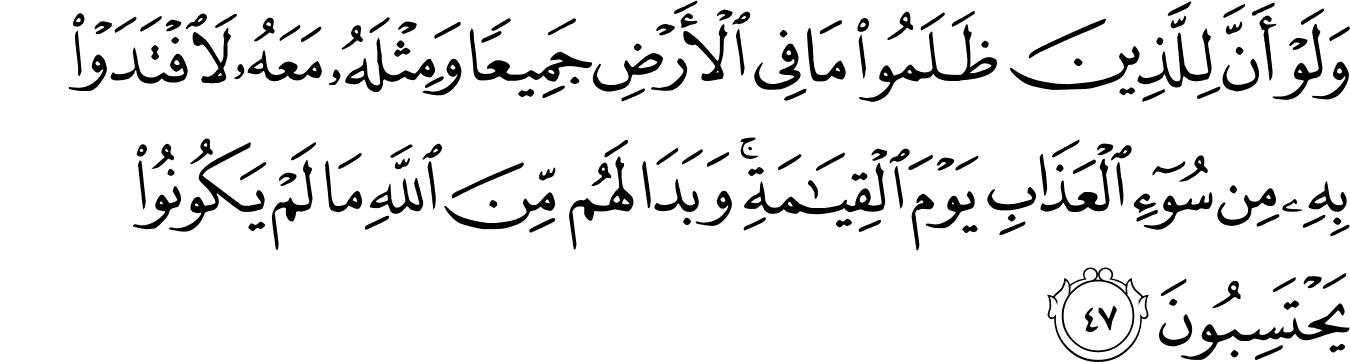 وَلَوْ أَنَّ لِلَّذِينَ ظَلَمُوا۟ مَا فِى ٱلْأَرْضِ جَمِيعًا وَمِثْلَهُۥ مَعَهُۥ لَٱفْتَدَوْا۟
بِهِۦ مِن سُوٓءِ ٱلْعَذَابِ يَوْمَ ٱلْقِيَـٰمَةِ ۚ وَبَدَا لَهُم مِّنَ ٱللَّهِ مَا لَمْ يَكُونُوا۟
يَحْتَسِبُونَ ٤٧